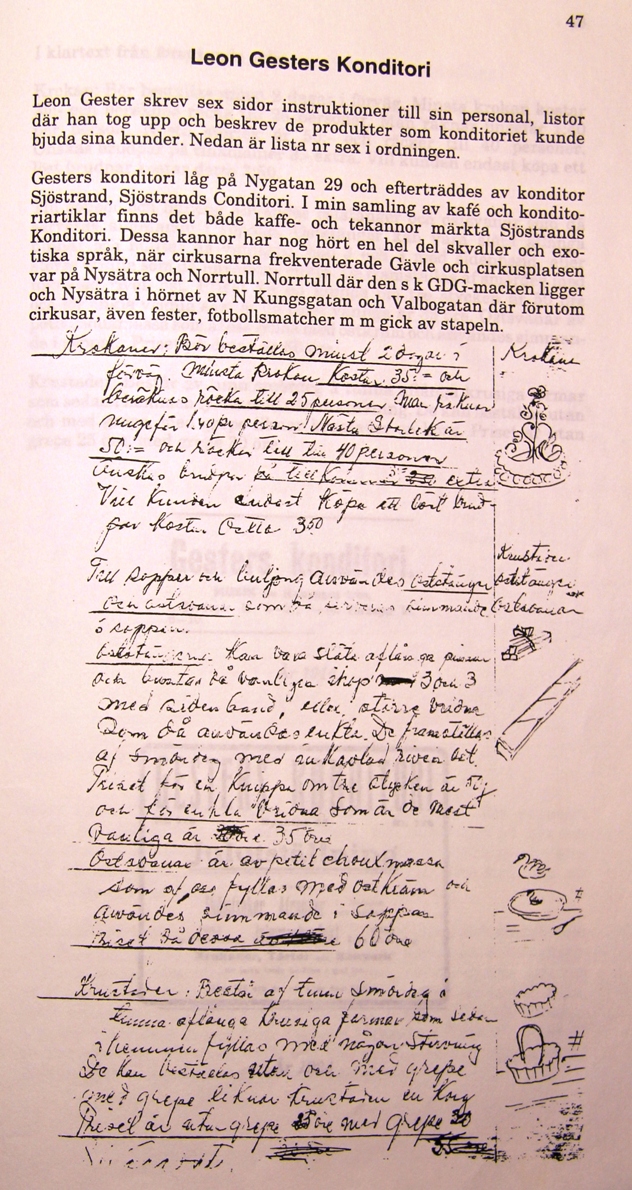 47
Leon Gesters Konditori
Leon Gester skrev sex sidor instruktioner till sin personal, listor
där han tog upp och beskrev de produkter som konditoriet kunde
bjuda sina kunder. Nedan är lista nr sex i ordningen.
Gesters konditori låg på Nygatan 29 och efterträddes av konditor
Sjöstrand, Sjöstrands Conditori. I min samling av kafé och kondito-
riartiklar finns det både kaffe- och tekannor märkta Sjöstrands
Konditori. Dessa kannor har nog hört en hel del skvaller och exo-
tiska språk, när cirkusarna frekventerade Gävle och cirkusplatsen
var på Nysätra och Norrtull. Norrtull där den s k GDG-macken ligger
och Nysätra i hörnet av N Kungsgatan och Valbogatan där förutom
cirkusar, även fester, fotbollsmatcher m m gick av stapeln.
Krokaner: Bör beställas minst 2 dagar i
Krokane
förväg. Minsta Krokan Kostar 35:- och
beräknas räcka till 25 personer. Man räknar
ungefär person Nästa Storlek är
50:- och räcker till 40 personer
Önskas extra
Vill Kunden endast Köpa ett löst
par Kostar detta 3 50
Till soppor och buljong användes oststänger
oststänger
och ostsvanar som då serveras simmande
Ostsvanar
i soppan.
Oststängerna Kan vara släta aflånga pinnar
och buntas då vanligen ihop 3 och 3
med siden band, eller större vridna
Som då användes enkla. De framställas
af Smördeg med inkavlad riven ost.
Priset för en Knippe om tre stycken är
och för enkla Vridna Som är de mest
Vanliga är 35 öre
Ostsvanar är av petit chouxmassa
som fyllas med ostkräm och
användes simmande i soppor
Priset då dessa 60 öre
Krustader: Består af tunn Smördeg i
tunna aflånga Krusiga formar som sedan
i hemmen fyllas med någon Stuvning
De Kan beställas utan och med grepe
med grepe liknar Krustaden en Korg
Priset är utan grepe öre med Grepe